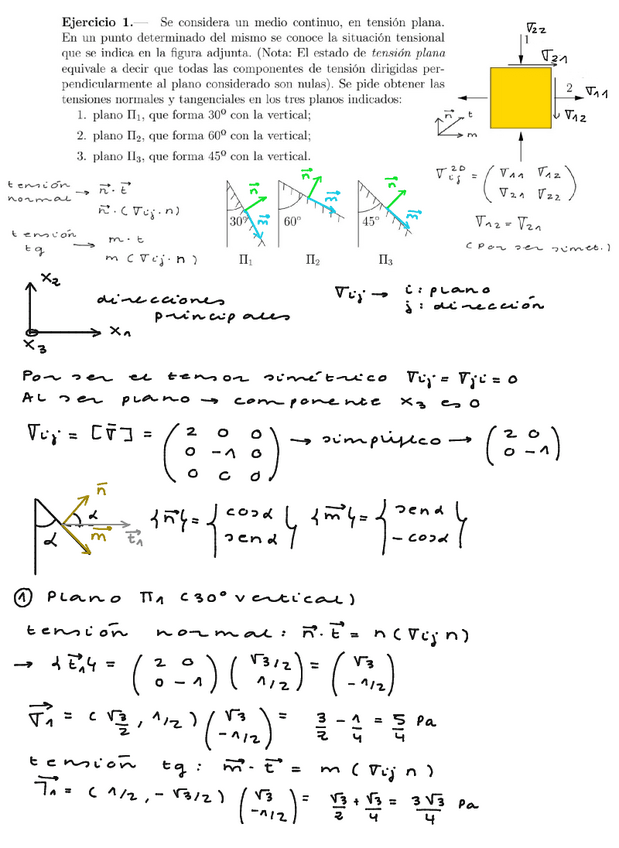 Ejercicio 1.— Se considera un medio continuo, en tensión plana.
En un punto determinado del mismo se conoce la situación tensional
que se indica en la figura adjunta. (Nota: El estado de tensión plana
equivale a decir que todas las componentes de tensión dirigidas per-
pendicularmente al plano considerado son nulas). Se pide obtener las
tensiones normales y tangenciales en los tres planos indicados:
1. plano Π₁, que forma 30º con la vertical;
2. plano Π₂, que forma 60º con la vertical;
3. plano Π₃, que forma 45º con la vertical.
∇₂₂
1
∇₂₁
2 ∇₁₁
∇₁₂
n⃗ t
m
∇ᵢⱼ²ᴰ = (∇₁₁ ∇₁₂
∇₂₁ ∇₂₂)
∇₁₂ = ∇₂₁
(por ser simet.)
tensión normal → n⃗ · t⃗
n⃗ · (∇ij · n)
tensión tg → m · t
m (∇ij · n)
n⃗ n⃗ n⃗
m⃗ m⃗ m⃗
30º 60º 45º
Π₁ Π₂ Π₃
x₂
x₁
x₃
direcciones principales
∇ij → i: plano
j: dirección
Por ser el tensor simétrico ∇ij = ∇ji = 0
Al ser plano → componente x₃ es 0
∇ij = [∇̄] = (2 0 0
0 -1 0
0 0 0) → simplifico → (2 0
0 -1)
n̄
α
α
m⃗
t⃗₁
{n⃗} = {cosα
senα} {m⃗} = {senα
-cosα}
① Plano Π₁ (30º vertical)
tensión normal: n⃗ · t⃗ = n (∇ij n)
→ {t⃗₁} = (2 0
0 -1) (√3/2
1/2) = (√3
-1/2)
∇⃗₁ = (√3/2, 1/2) (√3
-1/2) = 3/2 - 1/4 = 5/4 Pa
tensión tg: m⃗ · t⃗ = m (∇ij n)
T⃗₁ = (1/2, -√3/2) (√3
-1/2) = √3/2 + √3/4 = 3√3/4 Pa